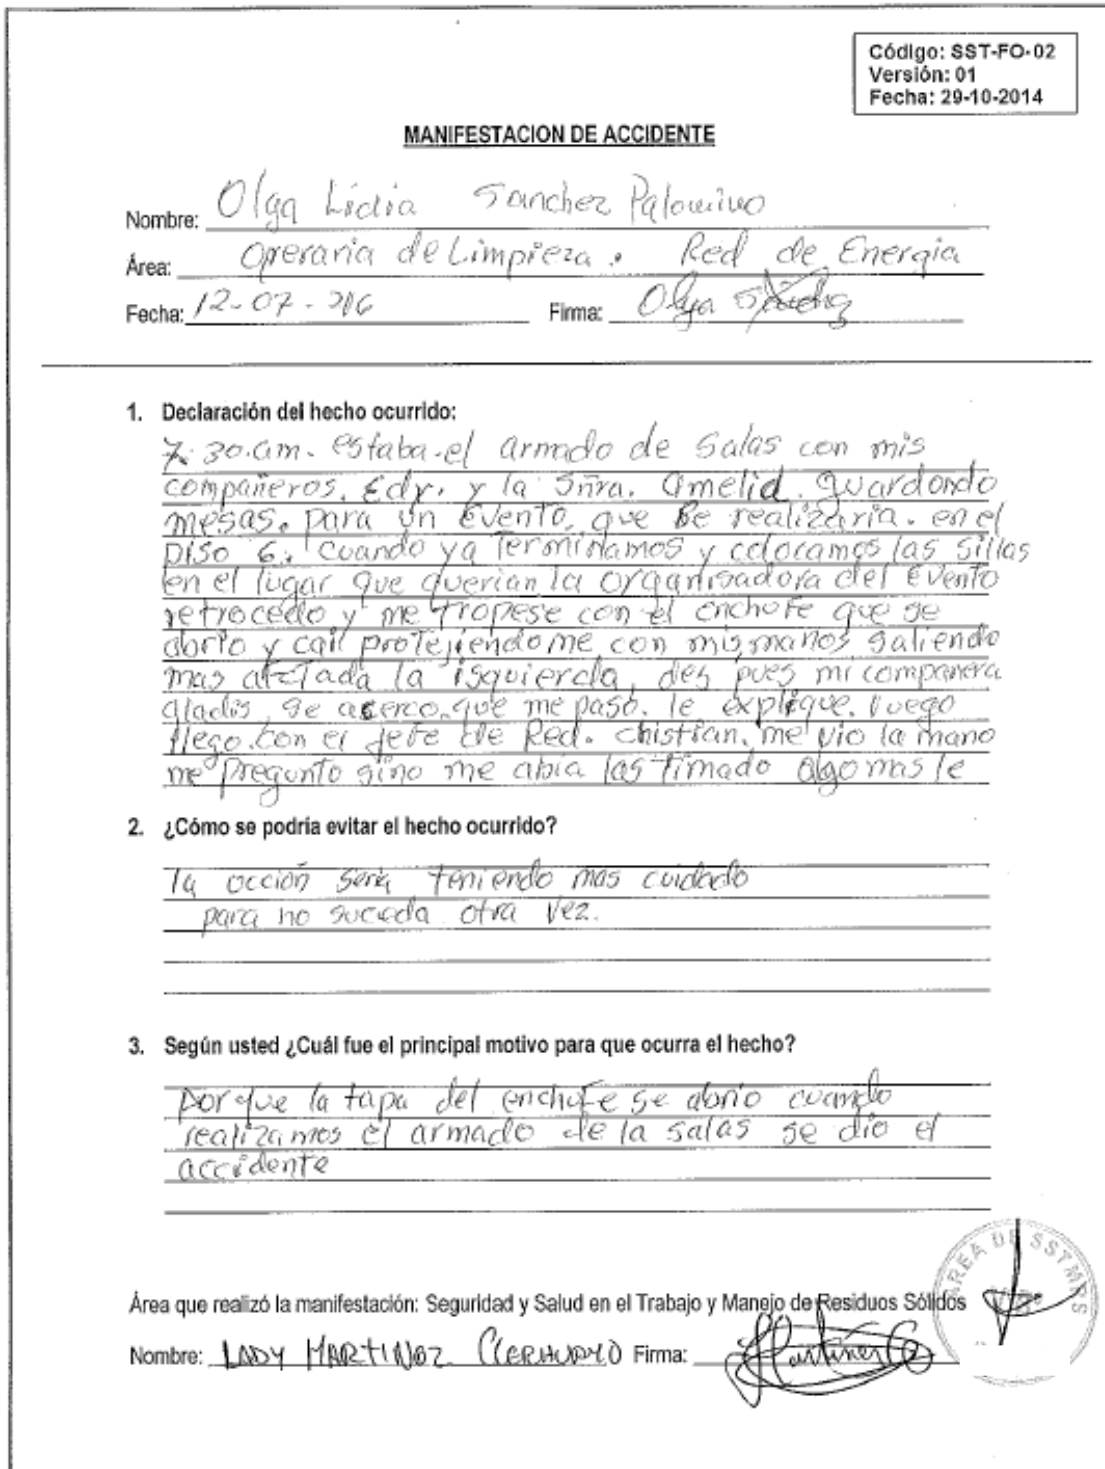 Código: SST-FO-02
Versión: 01
Fecha: 29-10-2014
MANIFESTACION DE ACCIDENTE
Nombre: Olga Lidia Sanchez Palomino
Área: Operaria de Limpieza. Red de Energia
Fecha: 12-07-2016 Firma: Olga Sánchez
1. Declaración del hecho ocurrido:
7:30.am. estaba.el armado de Salas con mis
compañeros. Edy. y la Sñra. Amelid. guardondo
mesas. para un Evento, que se realizaria. en el
piso 6. cuando ya Terminamos y colocamos las sillas
en el lugar que querian la organisadora del Evento
retrocedo y me tropese con el enchufe que se
abrio y caíl protejiendome con mis manos saliendo
mas afectada la isquierda, des pues mi companera
gladis, se acerco, que me paso. le explique. luego
llego. con el jefe de Red. chistian. me vio la mano
me pregunto sino me abia las timado algo mas le
2. ¿Cómo se podría evitar el hecho ocurrido?
la acción seria teniendo mas cuidado
para no suceda otra vez.
3. Según usted ¿Cuál fue el principal motivo para que ocurra el hecho?
por que la tapa del enchufe se abrio cuando
realizamos el armado de la salas se dio el
accidente
Área que realizó la manifestación: Seguridad y Salud en el Trabajo y Manejo de Residuos Sólidos
Nombre: LADY MARTINEZ Firma:
AREA DE SSTMRS